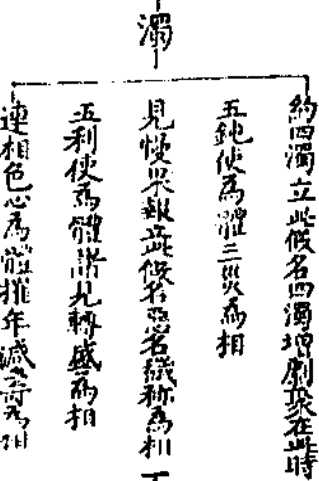 濁
約四濁立此假名四濁增劇聚在此時
五鈍使為體三災為相
見慢果報立此假名惡名穢稱為相
五利使為體諸見轉盛為相
連相色心為體摧年減壽為相